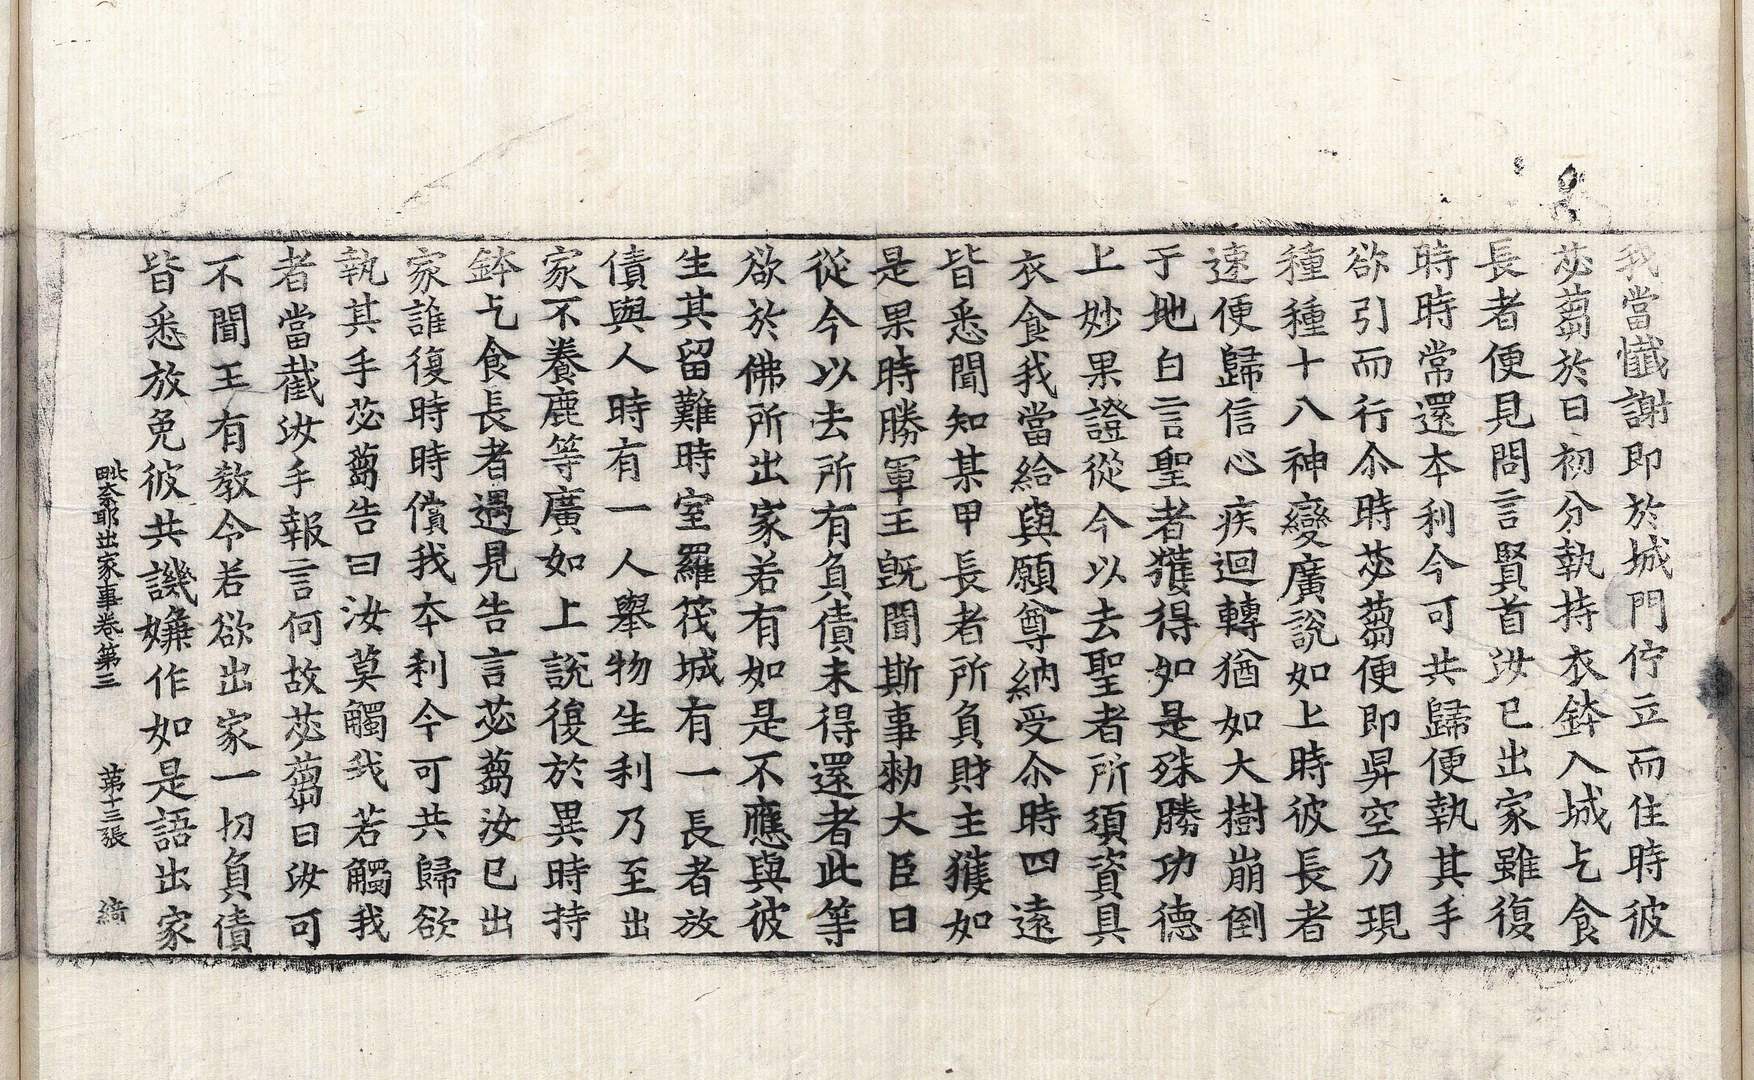 我當懺謝即於城門佇立而住時彼
苾蒭於日初分執持衣鉢入城乞食
長者便見問言賢首汝已出家雖復
時時常還本利今可共歸便執其手
欲引而行尒時苾蒭便即昇空乃現
種種十八神變廣說如上時彼長者
速便歸信心疾迴轉猶如大樹崩倒
于地白言聖者獲得如是殊勝功德
上妙果證從今以去聖者所須資具
衣食我當給與願尊納受尒時四遠
皆悉聞知某甲長者所負財主獲如
是果時勝軍王旣聞斯事勑大臣曰
從今以去所有負債未得還者此等
欲於佛所出家若有如是不應與彼
生其留難時室羅筏城有一長者放
債與人時有一人舉物生利乃至出
家不養鹿等廣如上說復於異時持
鉢乞食長者遇見告言苾蒭汝已出
家誰復時時償我本利今可共歸欲
執其手苾蒭告曰汝莫觸我若觸我
者當截汝手報言何故苾蒭曰汝可
不聞王有敎令若欲出家一切負債
皆悉放免彼共譏嫌作如是語出家
毗奈耶出家事卷第三 第十三張 綺